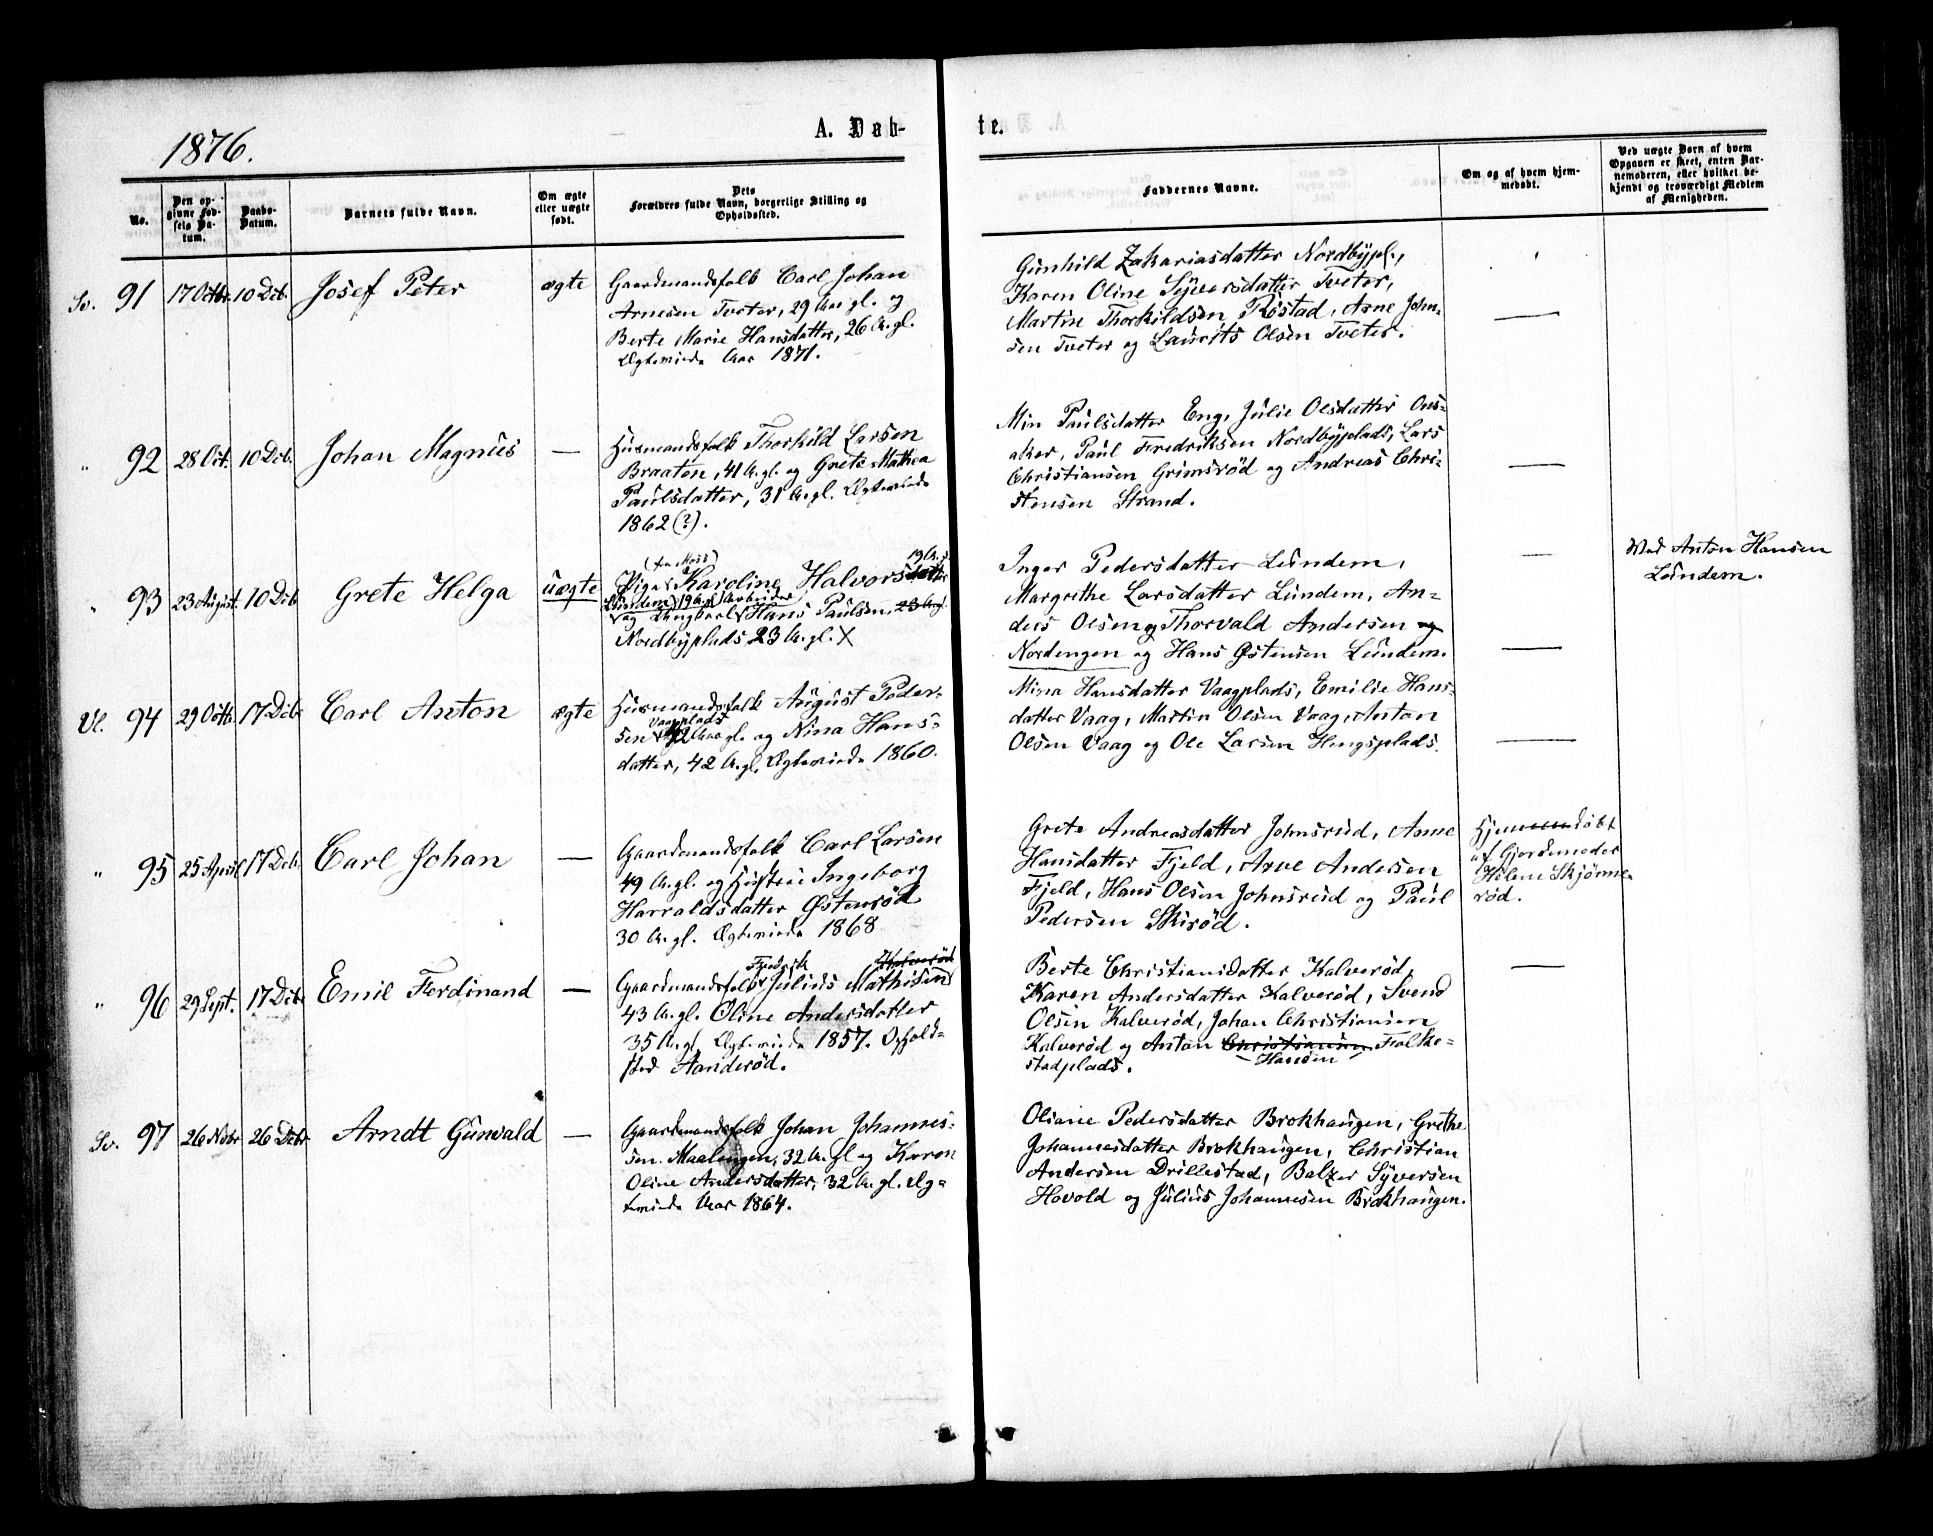 1876.
A. Døb-
te.
No.
Den op-
givne Fød-
sels Da-
tum.
Daabs-
Datum.
Barnets fulde Navn.
Om ægte
eller uægte
født.
Dets
Forældres fulde Navn, borgerlige Stilling og
Opholdssted.
Faddernes Navne.
Om og af hvem hjem-
medøbt.
Ved uægte Børn af hvem
Opgaven er skeet, enten Bar-
nemoderen, eller hvilket be-
kjendt og troværdigt Medlem
af Menigheden.
Sv. 91 17 Octbr. 10 Deb. Josef Peter ægte
Gaardmandsfolk Carl Johan
Arnesen Tveter, 29 Aar gl. og
Berte Marie Hansdatter, 26 A. gl.
Ægteviede Aar 1871.
Gunhild Zakariasdatter Nordbypl.,
Karen Oline Syversdatter Tveter,
Martin Thorkildsen Røstad, Arne John-
sen Tveter og Laurits Olsen Tveter.
—
" 92 28 Oct. 10 Deb. Johan Magnus —
Husmandsfolk Thorkild Larsen
Braaten, 41 A. gl. og Grete Mathea
Paulsdatter, 31 A. gl. Ægteviede
1862 (?).
Min Paulsdatter Eng, Julie Olsdatter Ons-
aker, Paul Fredriksen Nordbyplads, Lars
Christiansen Grimsrød og Andreas Chri-
stensen Strand.
—
" 93 23 August. 10 Deb Grete Helga uægte
(fra Moss) 19 A. g.
Pige Karoline Halvorsdatter
Lundem, 19 A. gl. Arbeider
og Ungkarl Hans Paulsen, 23 A. gl.
Nordbyplads, 23 A. gl. X
Inger Pedersdatter Lundem,
Margrethe Larsdatter Lundem, An-
ders Olsen og Thorvald Andersen og
Nordengen og Hans Østensen Lundem.
—
—
Ved Anton Hansen
Lundem.
Vl. 94 29 Octb. 17 Deb. Carl Anton ægte
Husmandsfolk August Peder-
Vaagplads
sen 42 Aar gl. og Nina Hans-
datter, 42 A. gl. Ægteviede 1860.
Mina Hansdatter Vaagplads, Emilie Hans-
datter Vaag, Martin Olsen Vaag, Anton
Olsen Vaag og Ole Larsen Hengsplads.
—
" 95 25 April 17 Deb. Carl Johan —
Gaardmandsfolk Carl Larsen
49 A. gl. og Hustrue Ingeborg
Harraldsdatter Østenrød
30 A. gl. Ægteviede 1868
Grete Andreasdatter Johnsrud, Anne
Hansdatter Fjeld, Arve Andersen
Fjeld, Hans Olsen Johnsrud og Paul
Pedersen Skirød.
Hjemmedøbt
af Gjordemoder
Helene Skjønne-
rød.
" 96 29 Sept. 17 Deb. Emil Ferdinand —
Fredrik Kalverød
Gaardmandsfolk Julius Mathisen
43 A. gl. Oline Andersdatter
35 A. gl. Ægteviede 1857. Ophold-
sted Aanderød.
Berte Christiansdatter Kalverød,
Karen Andersdatter Kalverød, Svend
Olsen Kalverød, Johan Christiansen
Kalverød og Anton Christiansen Falke-
— Hansen —
stadplads.
—
Sv. 97 26 Nobr 26 Debr Arndt Gunvald —
Gaardmandsfolk Johan Johannes-
sen Maalengen, 32 A. gl og Karen
Oline Andersdatter, 32 A. gl. Æg-
teviede Aar 1864.
Oliane Pedersdatter Brokhaugen, Grethe
Johannesdatter Brokhaugen, Christian
Andersen Drillestad, Balzer Syversen
Hovold og Julius Johannesen Brokhaugen.